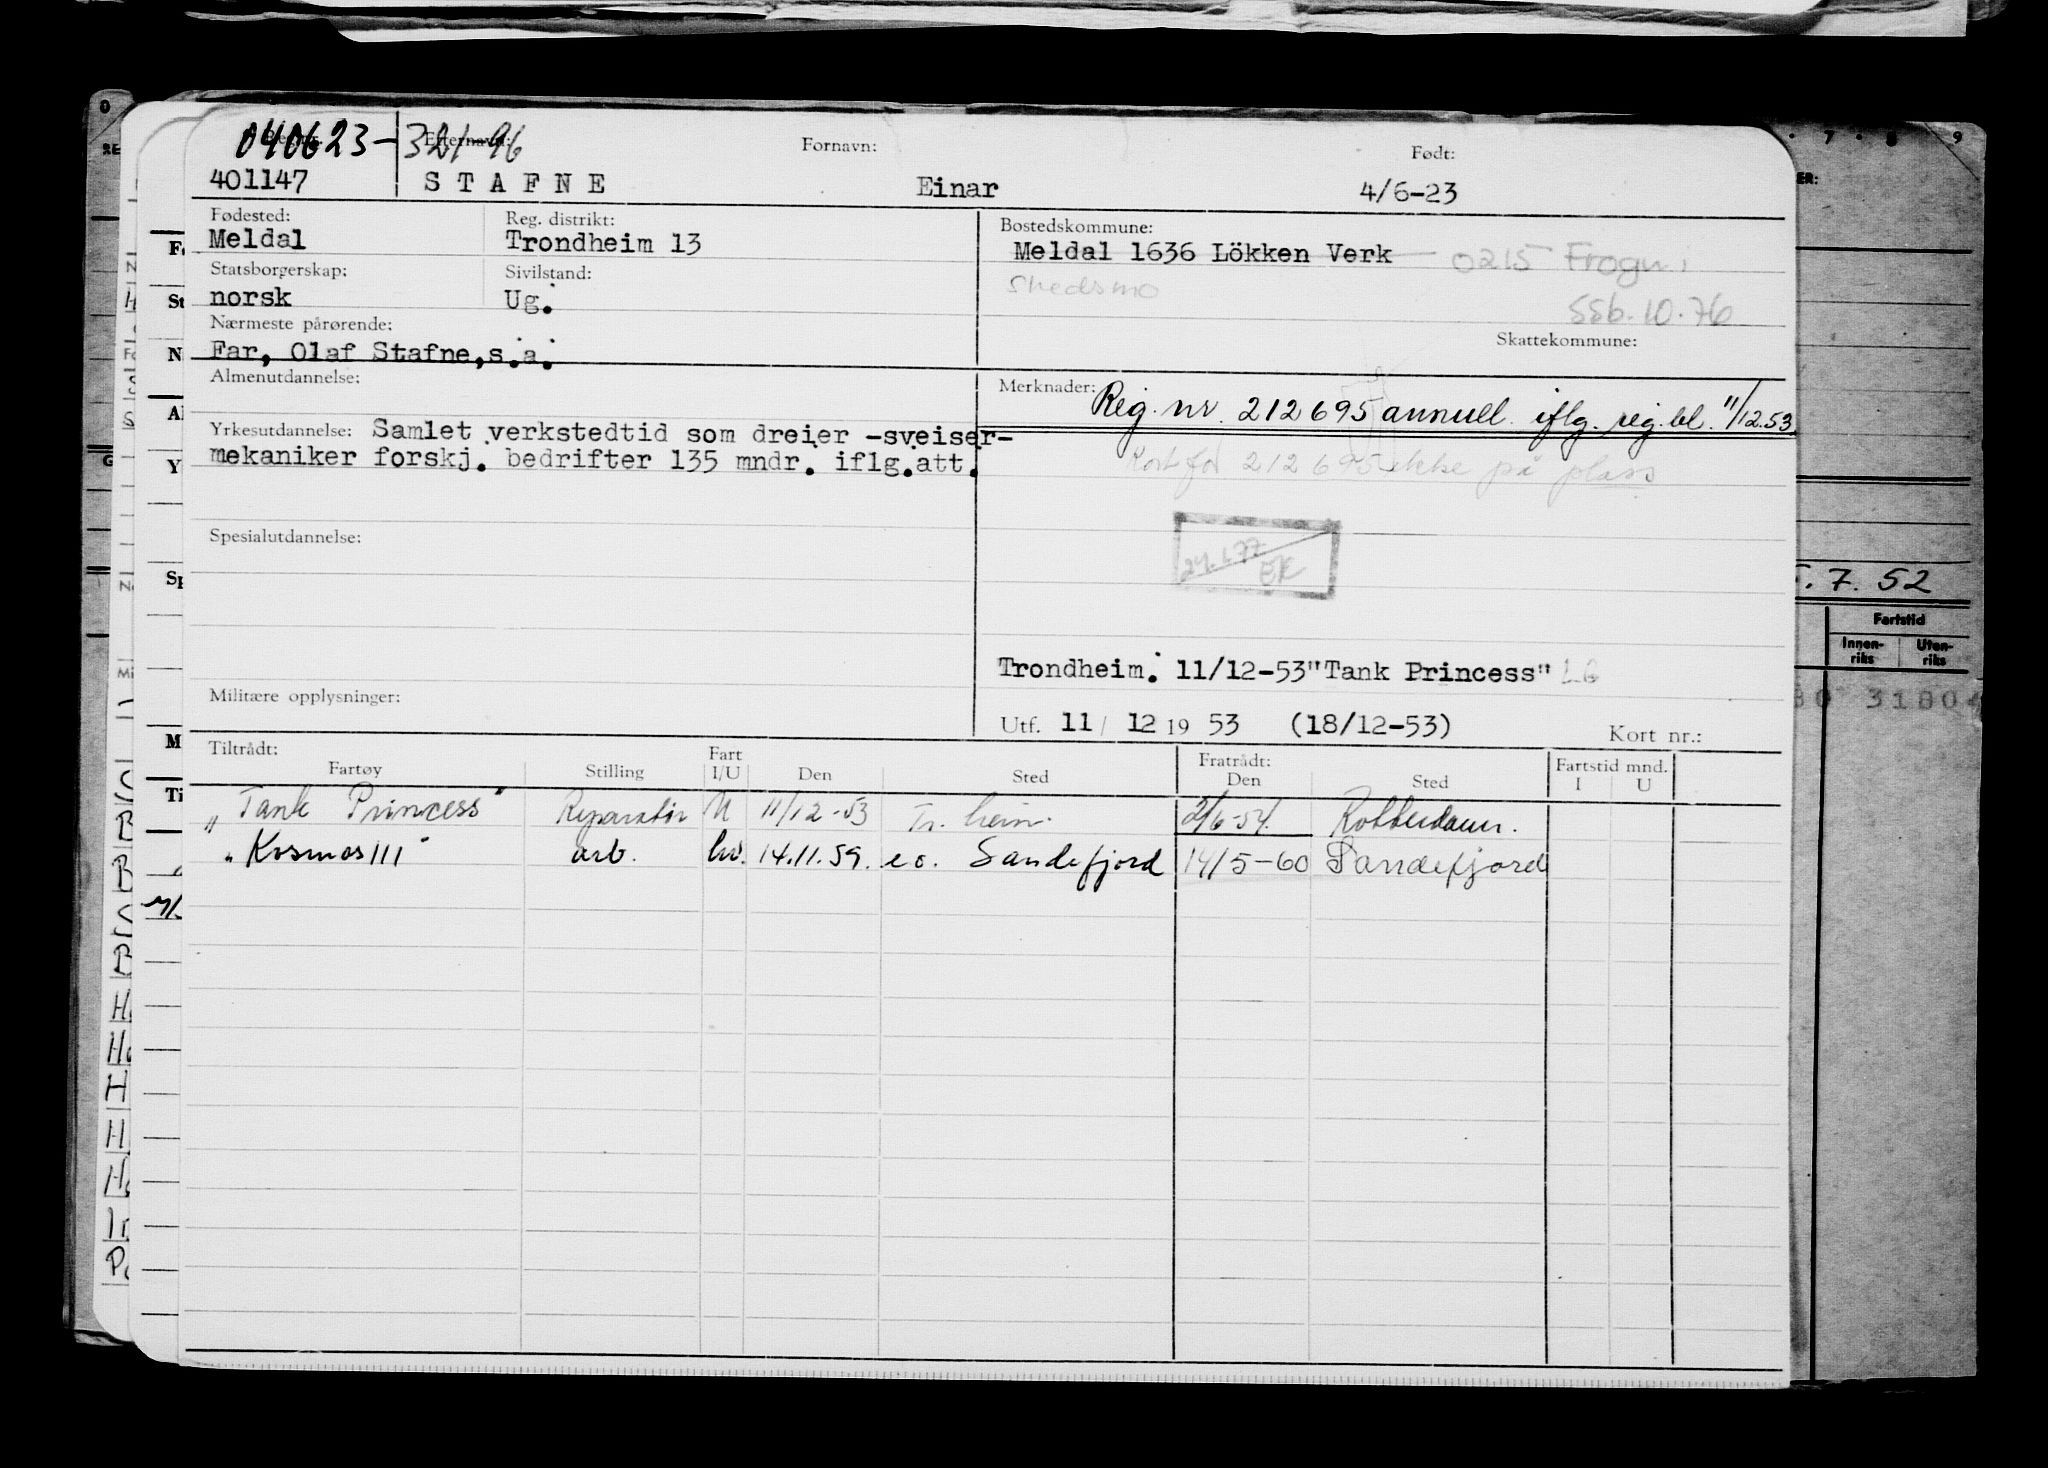 040623-32196
Efternavn: Fornavn: Født:
401147 STAFNE Einar 4/6-23
Fødested: Reg. distrikt: Bostedskommune:
Meldal Trondheim 13 Meldal 1636 Lökken Verk 0215 Frogn,
Statsborgerskap: Sivilstand: Skedsmo
norsk Ug. SSb.10.76
Nærmeste pårørende: Skattekommune:
Far, Olaf Stafne,s.a.
Almenutdannelse: Merknader: Reg. nr. 212695 annull. iflg. reg.bl. 11/12.53.
Yrkesutdannelse: Samlet verkstedtid som dreier -sveiser-
mekaniker forskj. bedrifter 135 mndr. iflg.att.
Kort for 212695 ikke på plass
Spesialutdannelse:
24.1.77
EK
Trondheim. 11/12-53"Tank Princess"
Militære opplysninger:
Utf. 11/ 12 19 53 (18/12-53) Kort nr.:
Tiltrådt: Fart Fratrådt: Fartstid mnd.
Fartøy Stilling I/U Den Sted Den Sted I U
"Tank Princess" Reparatør U 11/12-53 Tr.heim. 2/6-54. Rotterdam.
"Kosmos III" arb. hv. 14.11.59. e.o. Sandefjord 14/5-60 Sandefjord
5.7.52
Fartstid
Innen-riks Uten-riks